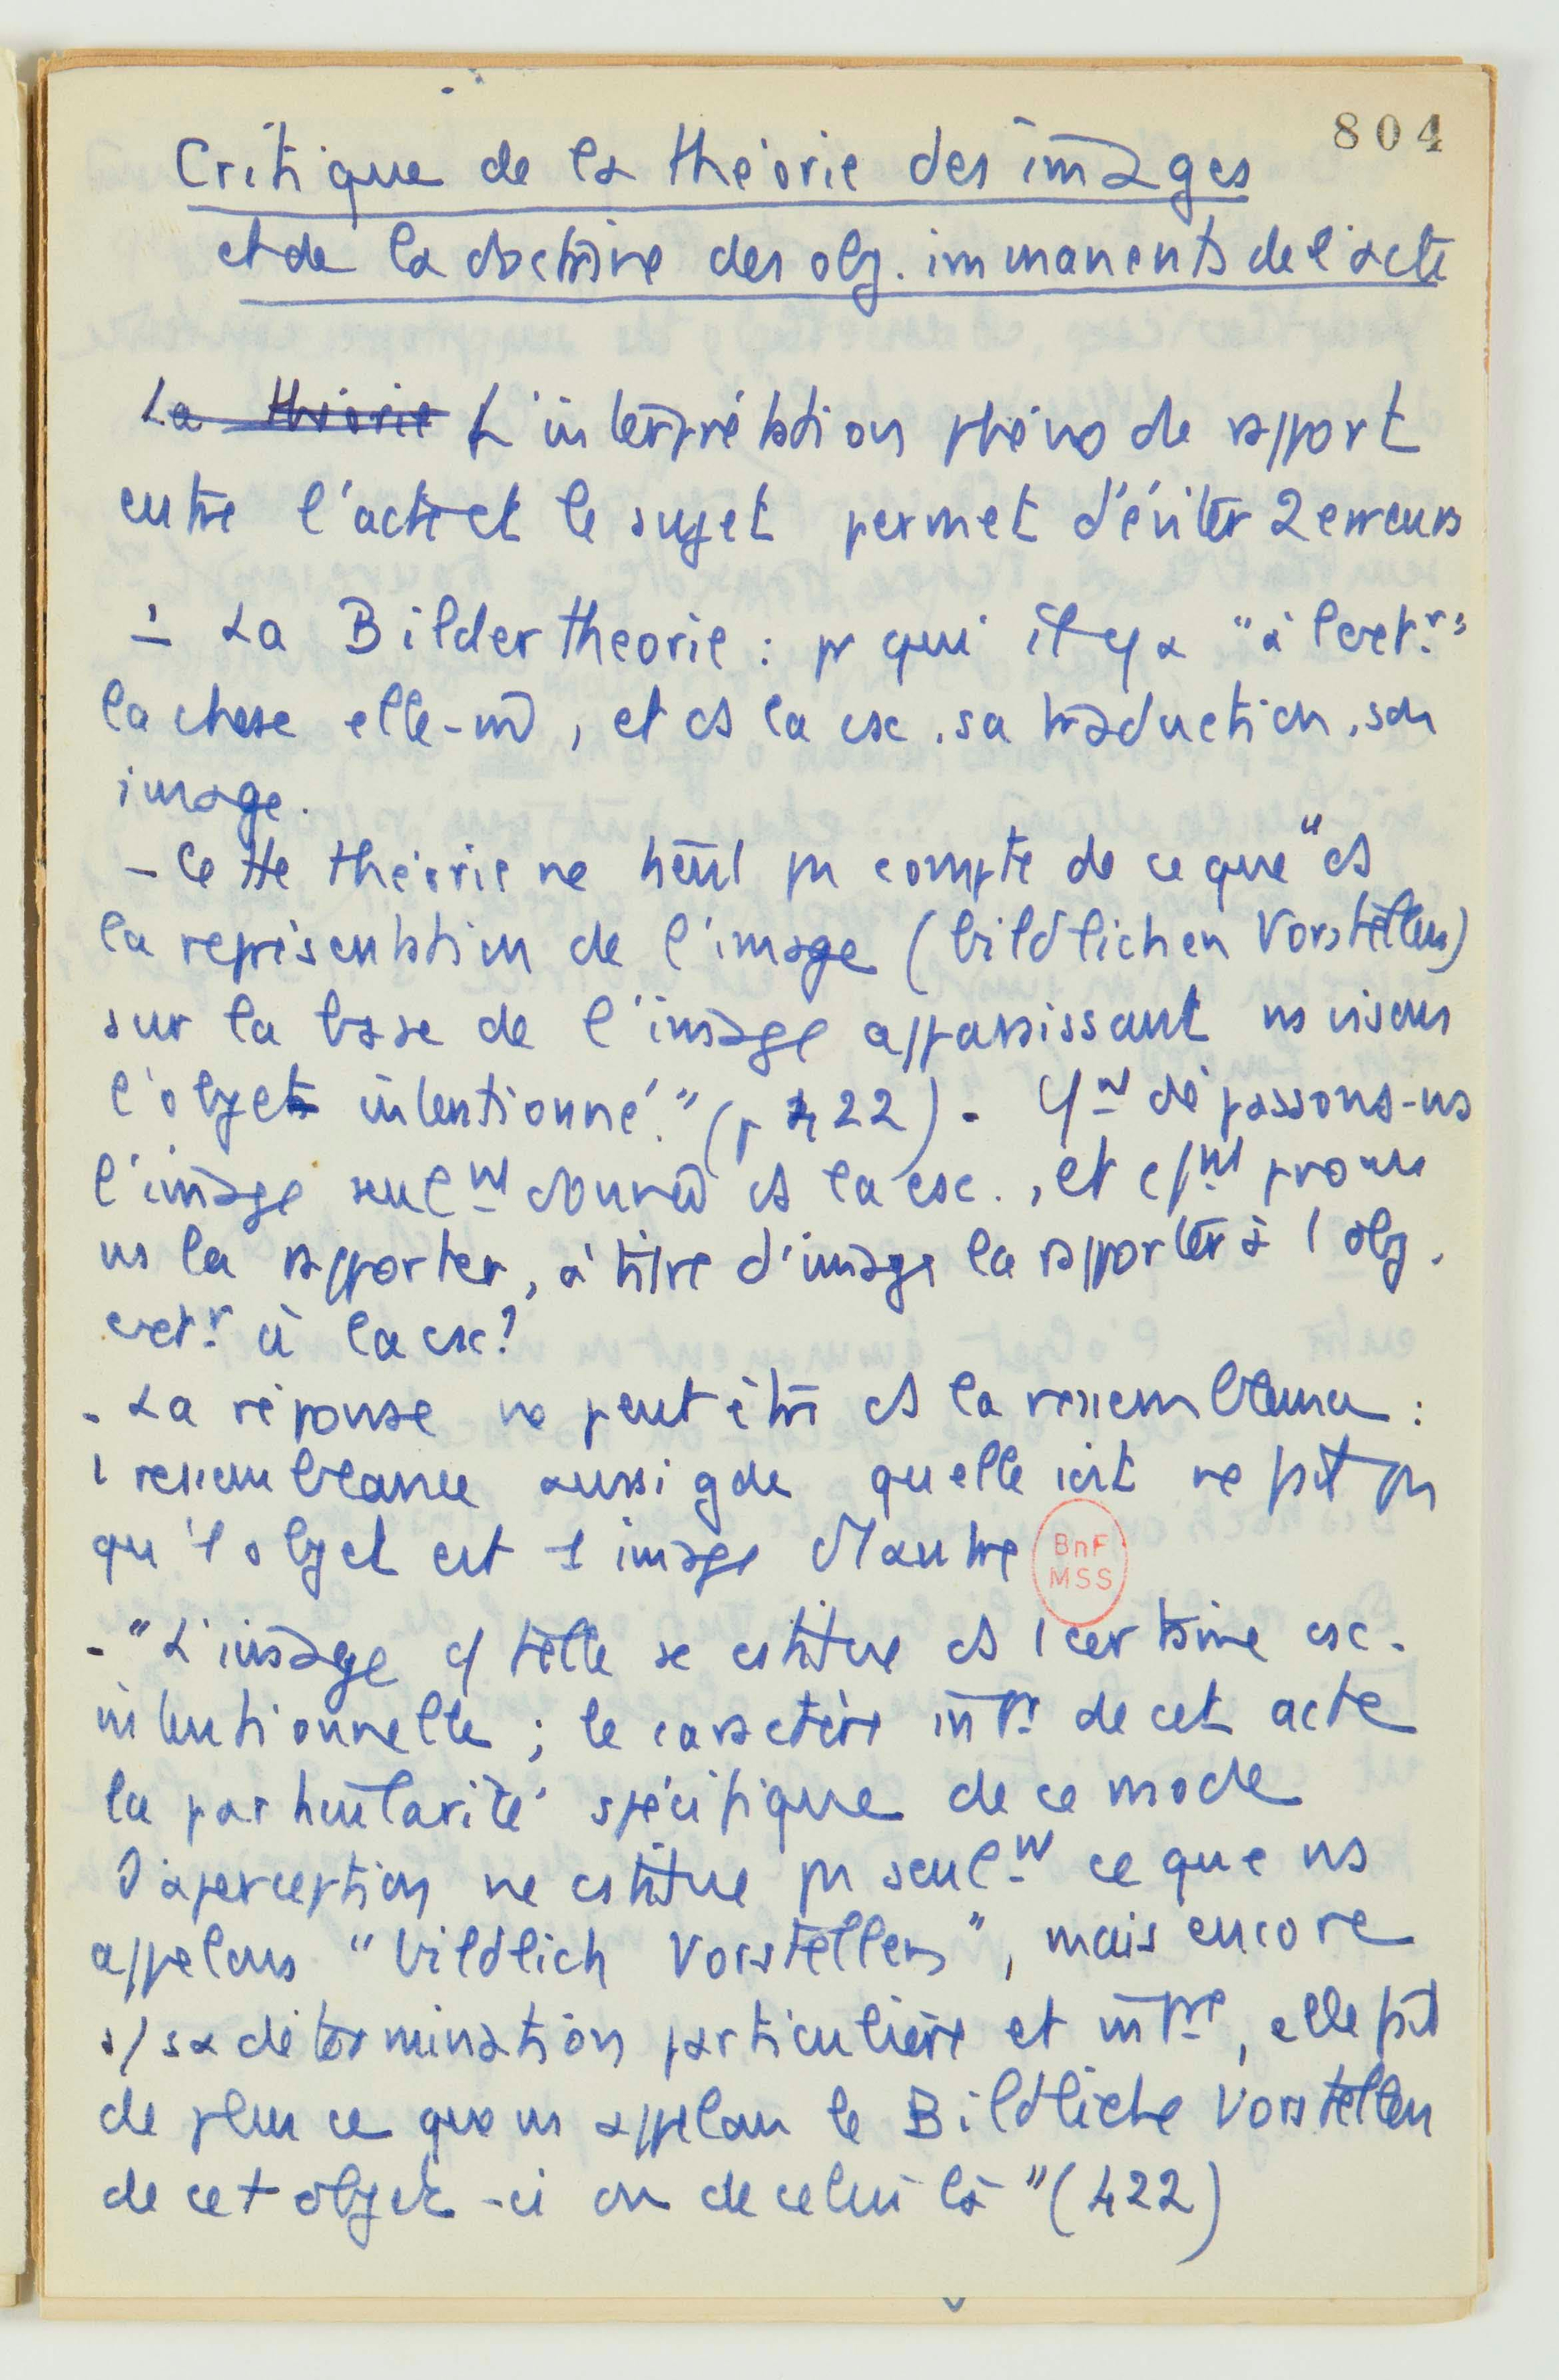 804
Critique de la théorie des images
et de la doctrine des obj. immanents de l'acte
La théorie L'interprétation phéno de rapport
entre l'acte et le sujet permet d'éviter 2 erreurs
1 La Bildertheorie : pr qui il y a "à l'extr"
la chose elle-m̄, et ds la csc. sa traduction, son
image.
- Cette théorie ne tient pas compte de ce que "ds
la représentation de l'image (bildlichen Vorstellen)
sur la base de l'image apparaissant ns visons
l'objet intentionné." (p 422). Cmt dépassons-ns
l'image seulmt donnée ds la csc., et cmt pouvons
ns la rapporter, à titre d'image la rapporter à l obj.
extr à la csc?
- La réponse ne peut être ds la ressemblance :
1 ressemblance aussi gde quelle soit ne fait pas
qu'1 objet est 1 image d'1 autre
BnF
MSS
- "L'image c/ telle se cstitue ds 1 certaine csc.
intentionnelle ; le caractère intr de cet acte
la particularité spécifique de ce mode
d'aperception ne cstitue pas seulmt ce que ns
appelons "bildlich Vorstellen", mais encore
s/ sa détermination particulière et intre, elle fait
de plus ce que ns appelons le Bildliche Vorstellen
de cet objet-ci ou de celui là" (422)